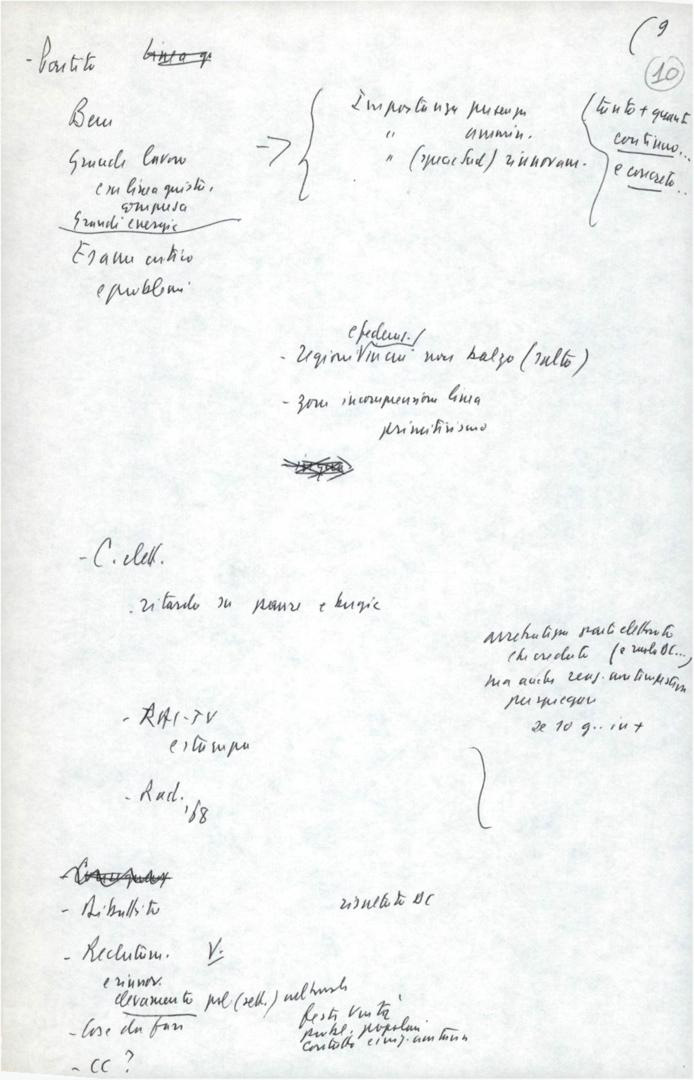 9
10
- Partito
Bene
Grande lavoro
con linea giusta,
compresa
Grandi energie
Esame critico
e problemi
Importanza presenza
" ammin.
" (specie Sud) rinnovam.
tanto + quanto
continuo...
e concreto..
e federaz.
- regioni non balzo (salto)
- zone incomprensione linea
primitivismo
- C. elett.
. ritardo su paure e bugie
arretratezza parte elettorato
che creduto (e ruolo DC...)
ma anche
per spiegare
se 10 g. in +
- RAI-TV
e stampa
- Rad.
'68
- Dibattito
risultato DC
- Reclutam. V.
e rinnov.
elevamento pol (sett.) culturale
- Cose da fare
Festa Unità
probl. popolari
- CC ?